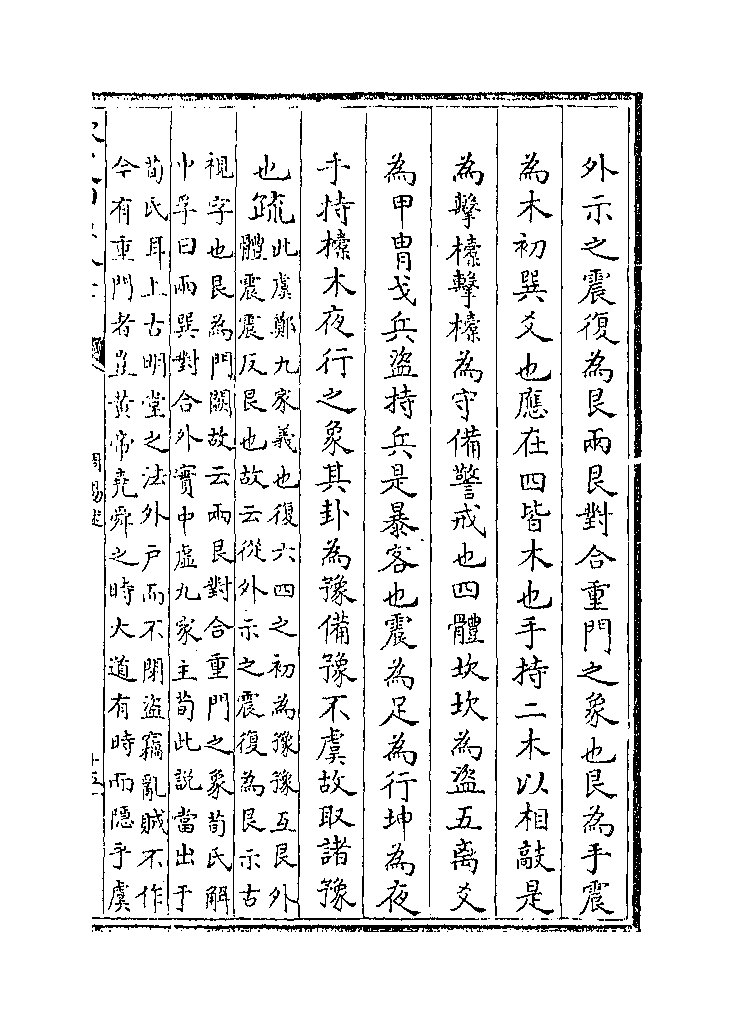 外示之震復為艮兩艮對合重門之象也艮為手震
為木初巽爻也應在四皆木也手持二木以相敲是
為擊㯓擊㯓為守備警戒也四體坎坎為盜五離爻
為甲胄戈兵盜持兵是暴客也震為足為行坤為夜
手持㯓木夜行之象其卦為豫備豫不虞故取諸豫
也疏此虞鄭九家義也復六四之初為豫豫互艮外
體震震反艮也故云從外示之震復為艮示古
視字也艮為門闕故云兩艮對合重門之象荀氏解
中孚曰兩巽對合外實中虛九家主荀此說當出于
荀氏耳上古明堂之法外戶而不閉盜竊亂賊不作
今有重門者豈黃帝堯舜之時大道有時而隱乎虞
周易述